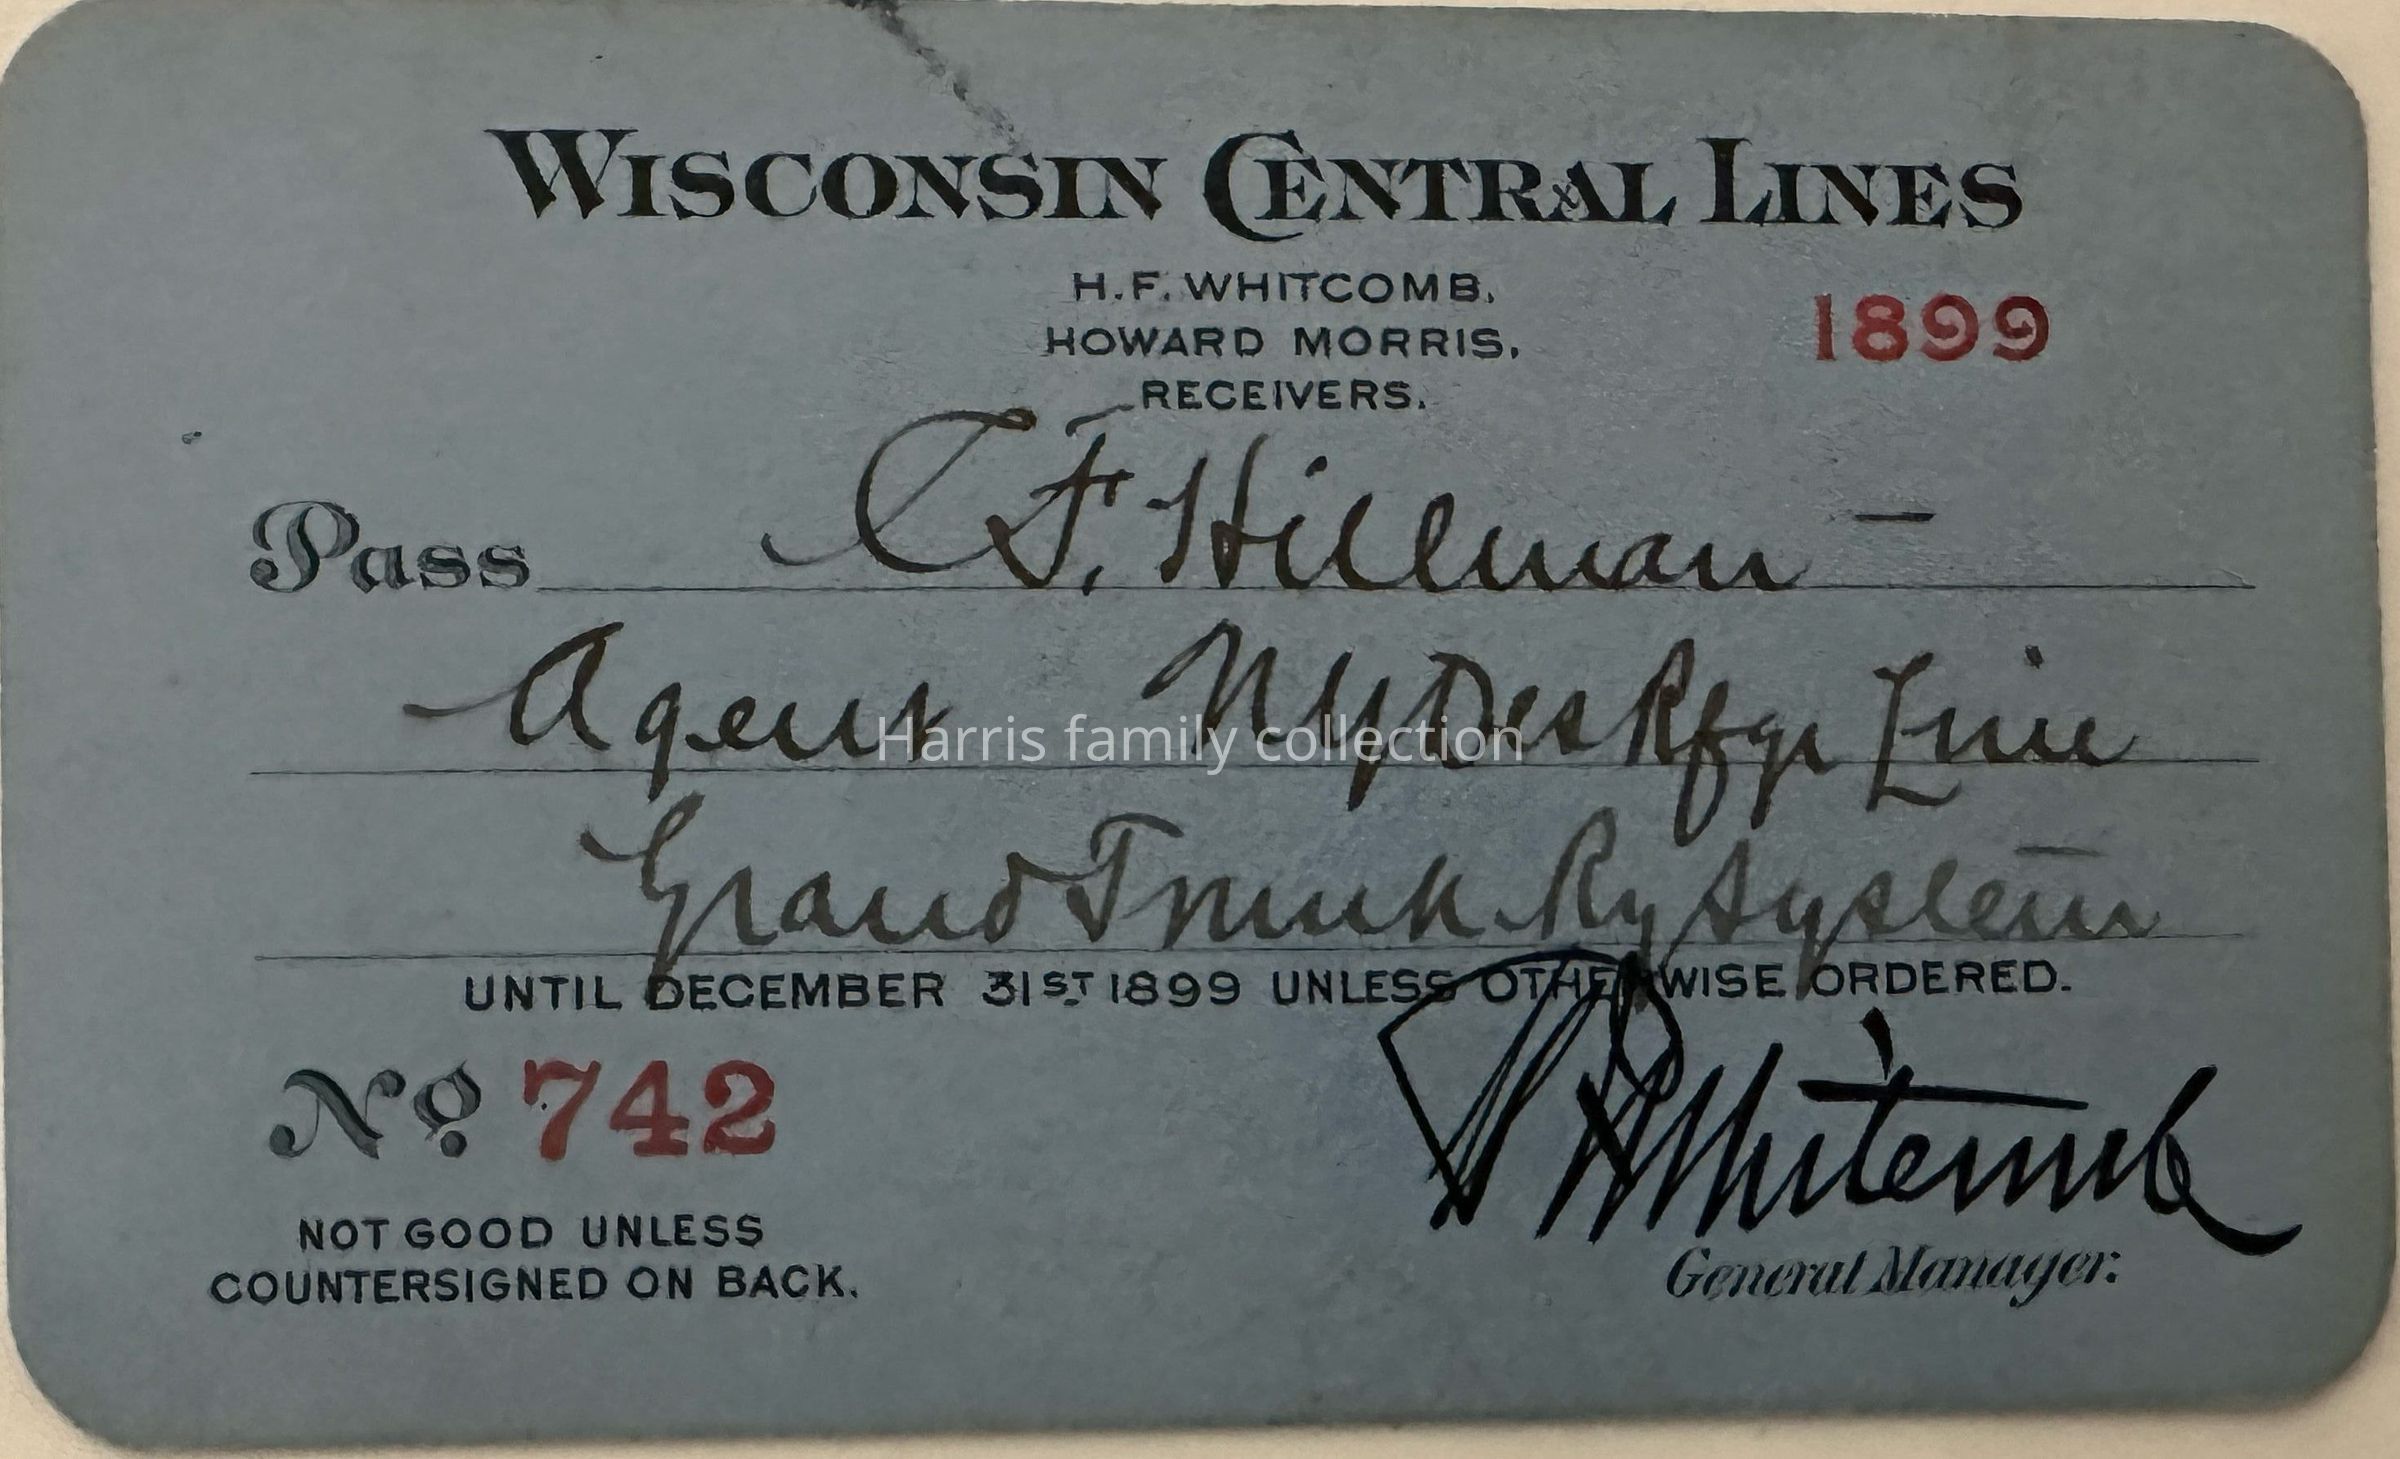 WISCONSIN CENTRAL LINES
H.F. WHITCOMB,
HOWARD MORRIS,
RECEIVERS.
1899
Pass C F. Hillman –
Agent Ny Des Rfgr Line
Harris family collection
Grand Trunk Ry System
UNTIL DECEMBER 31ST 1899 UNLESS OTHERWISE ORDERED.
No 742
Whitcomb
General Manager.
NOT GOOD UNLESS
COUNTERSIGNED ON BACK.